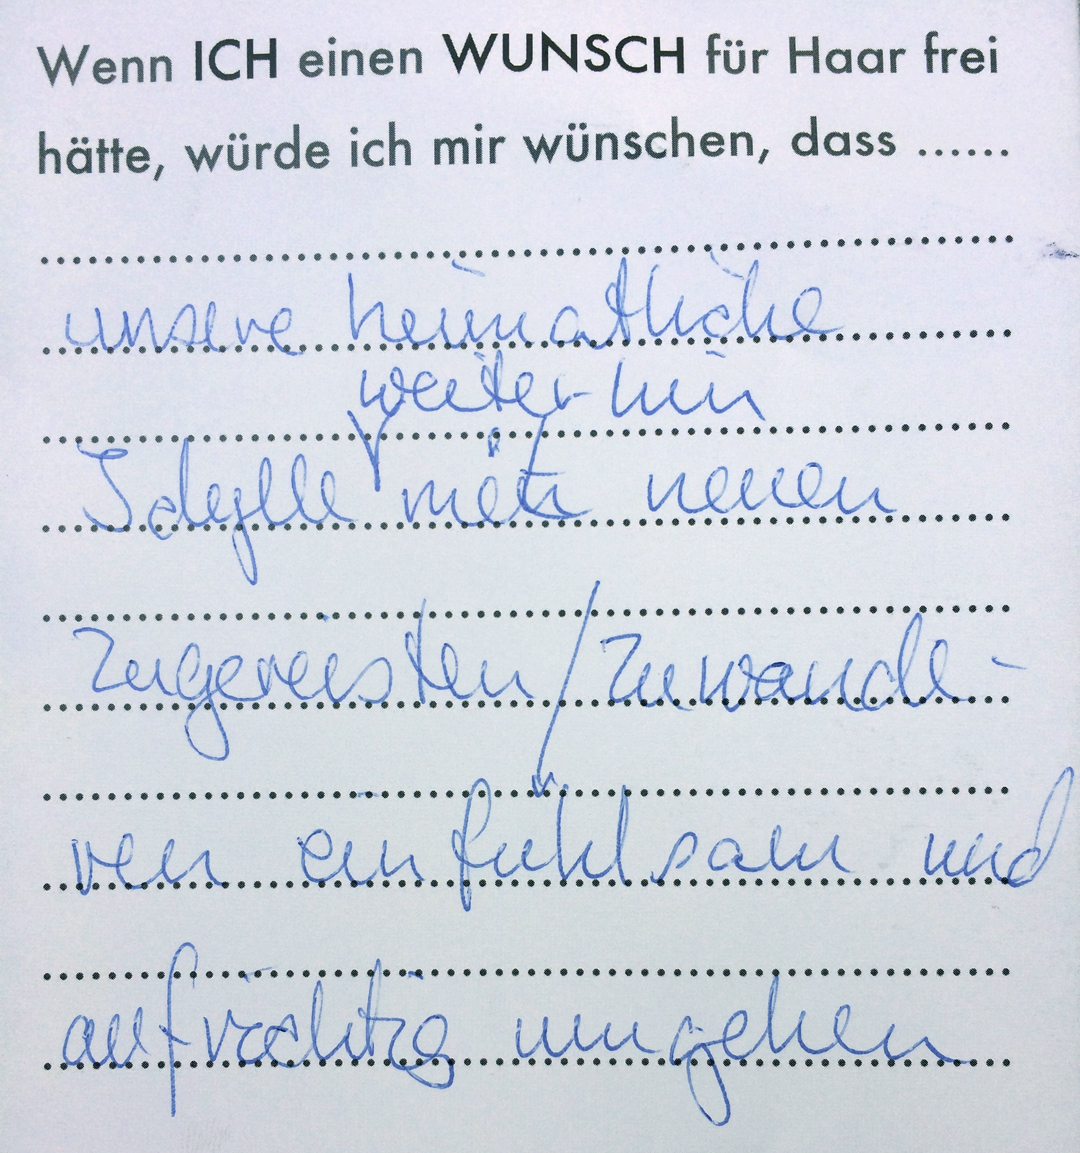 Wenn ICH einen WUNSCH für Haar frei
hätte, würde ich mir wünschen, dass ......
unsere heimatliche
weiterhin
Idylle mit neuen
Zugereisten / Zuwande-
ren einfühlsam und
aufrichtig umgehen